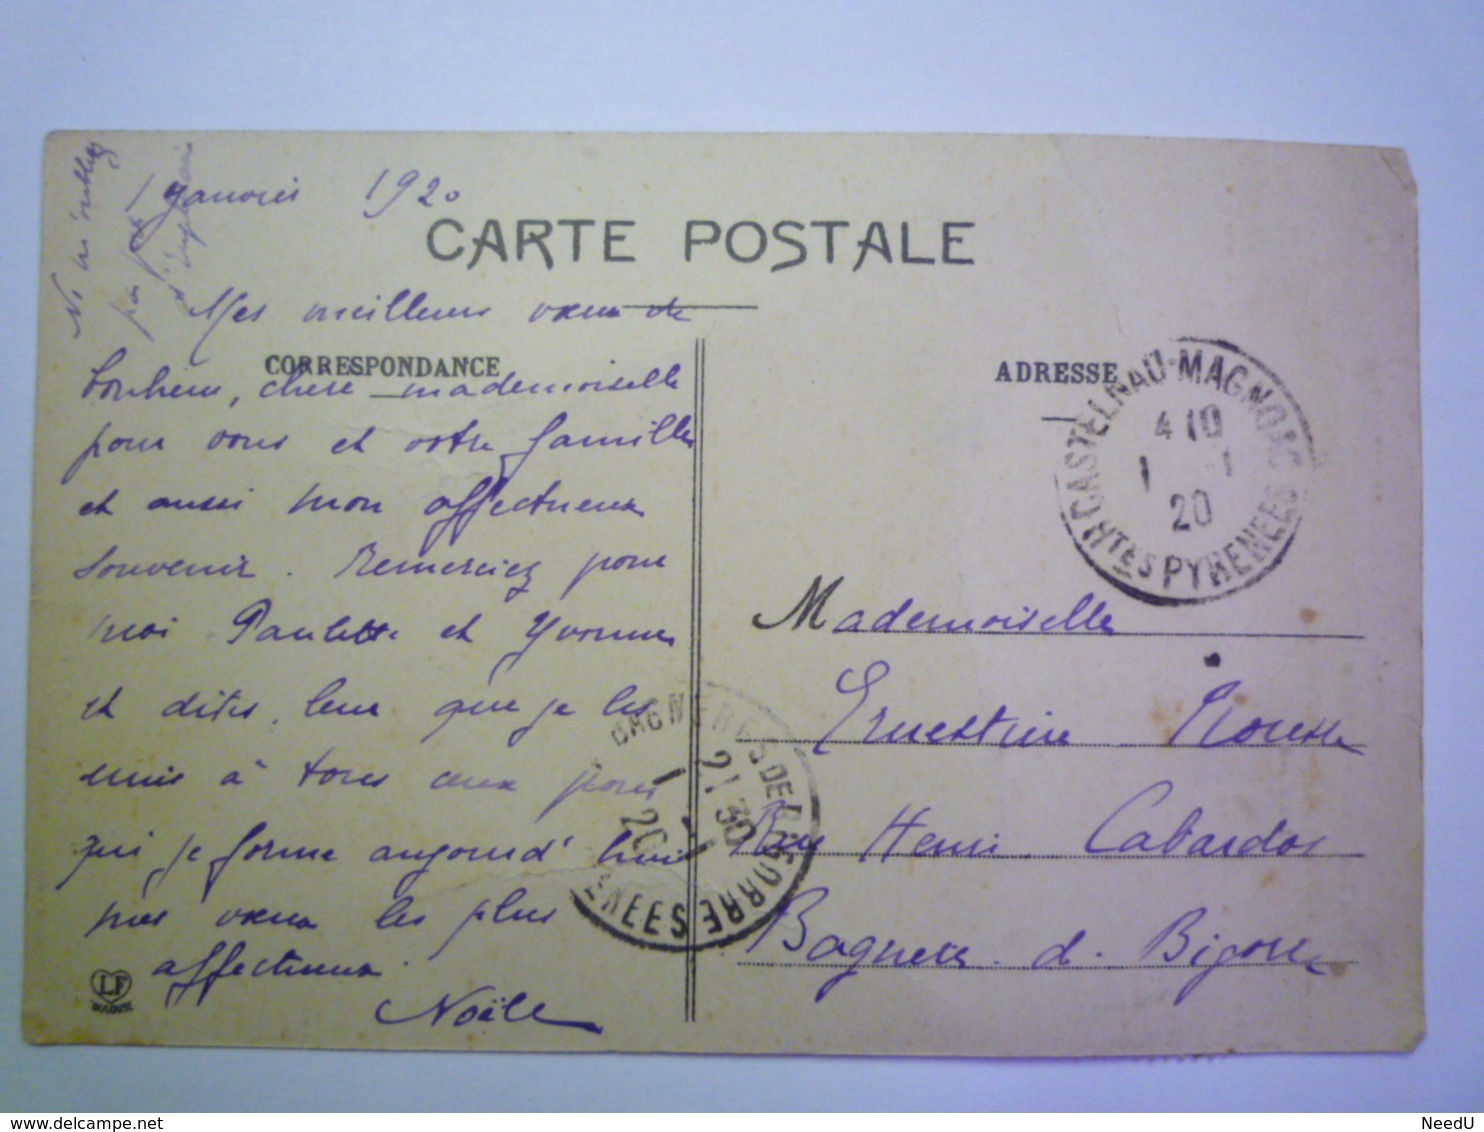 1 Janvier 1920
CARTE POSTALE
Mes meilleurs vœux de
CORRESPONDANCE
bonheur, chère mademoiselle
pour vous et votre famille
et aussi mon affectueux
souvenir. Remerciez pour
moi Paulette et Yvonne
et dites leur que je les
unis à tous ceux pour
qui je forme aujourd'hui
mes vœux les plus
affectueux.
Noële
N'oubliez
pas
LF
ADRESSE
CASTELNAU-MAGNOAC
4 10
1 -1
20
HTES PYRENEES
Mademoiselle
Ernestine
Rue Henri Cabardos
Bagneres de Bigorre
BAGNERES DE BIGORRE
21 30
1 1
20
NEEDU